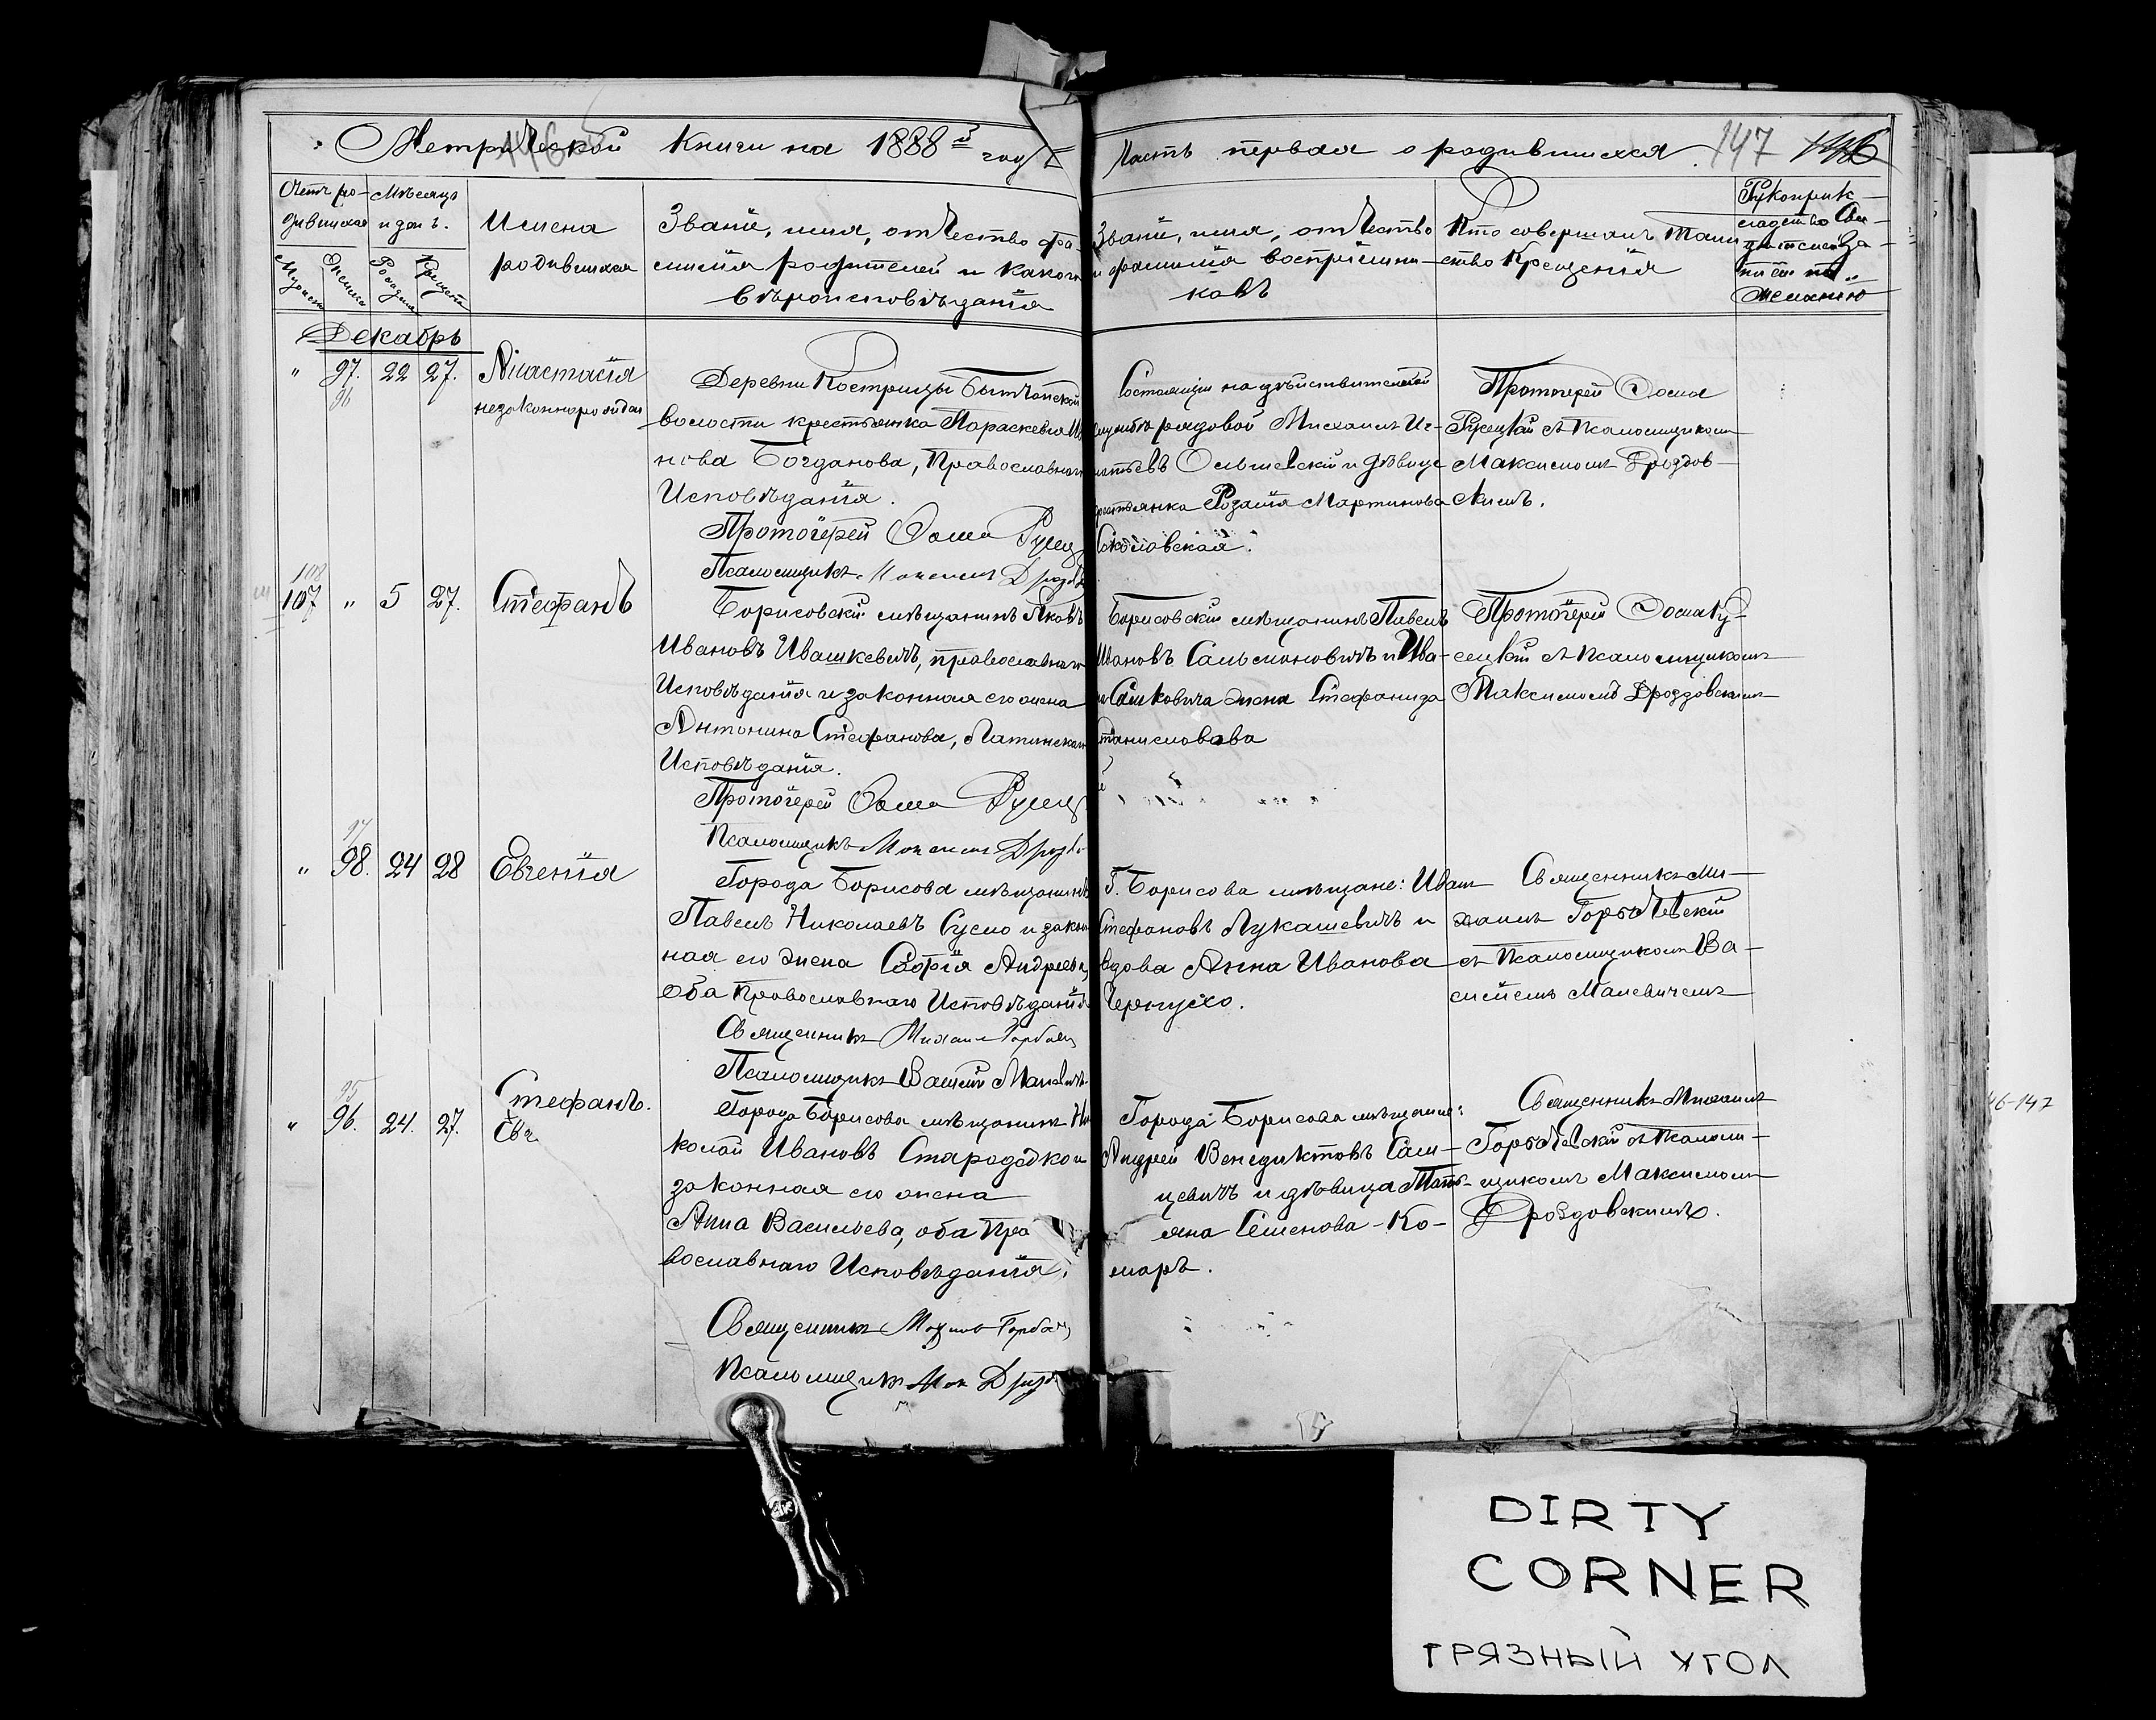 Метрической книги на 1888й годъ
Часть первая о родившихся. 147
Счетъ ро-
дившихся
Мѣсяцъ
и день.
Имена
родившихся
Званіе, имя, отчество фа-
милія родителей и какого
вѣроисповѣданія
Званіе, имя, отчество
и фамилія воспріемни-
ковъ
Кто совершалъ таин-
ство Крещенія
Рукоприк-
ладство сви-
по
желанію
Декабрь
" 97. 22 27. Анастасія
96
незаконнорождая
Деревни Кострицы Бытчанской
волости крестьянка Параскевія
нова Богданова, Православнаго
Исповѣданія.
Протоіерей Ѳома Русец
Псаломщикъ Максимъ Дроздов
Состоящій на дѣйствительной
службѣ рядовой Михаилъ Иг-
натьевъ Ольшевскій и дѣвица
крестьянка Розалія Мартинова
Соколовская.
Протоіерей Ѳома
Русецкій съ Псаломщикомъ
Максимомъ Дроздов-
скимъ.
108
107 " 5 27. Стефанъ
Борисовскій мѣщанинъ Яковъ
Ивановъ Ивашкевичъ, православнаго
Исповѣданія и законная его жена
Антонина Стефанова, Латинскаго
Исповѣданія.
Протоіерей Ѳома Русец
Псаломщикъ Максимъ Дроздо
Борисовскій мѣщанинъ Павелъ
Ивановъ и Ива-
жена Стефанида
Станиславова
Протоіерей Ѳома Ру-
сецкій съ Псаломщикомъ
Максимомъ Дроздовскимъ
97
" 98. 24 28 Евгенія
Города Борисова мѣщанинъ
Павелъ Николаевъ Сусло и закон
ная его жена Софія Андреева,
оба Православнаго Исповѣданія
Священникъ Михаилъ Горбац
Псаломщикъ Василій Малевичъ
Г. Борисова мѣщане: Иванъ
Стефановъ Лукашевичъ и
вдова Анна Иванова
Чернухо.
Священникъ Ми-
хаилъ
съ Псаломщикомъ Ва-
силіемъ Малевичемъ
95
" 96. 24. 27. Стефанъ.
Евг
Города Борисова мѣщанинъ Ни
колай Ивановъ и
законная его жена
Анна Васильева, оба Пра
вославнаго Исповѣданія.
Священникъ Михаилъ Горбац
Псаломщикъ Мак Дрозд
Города Борисова мѣщане:
Андрей Венедиктовъ Сам-
цевичъ и дѣвица Тать-
яна Семенова Ко-
маръ.
Священникъ Михаилъ
съ Псалом-
щикомъ Максимомъ
Дроздовскимъ.
46-147
DIRTY
CORNER
ГРЯЗНЫЙ УГОЛ